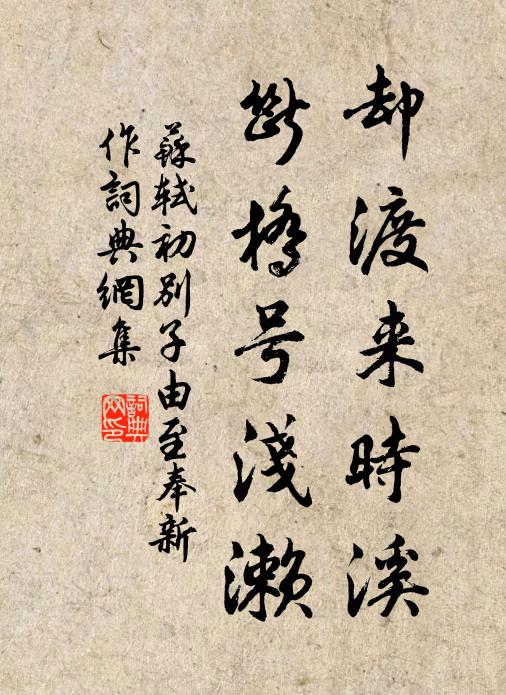 却渡来時溪
斷橋号淺瀨
蘇軾初别子由至奉新
作詞典網集
詞典网印